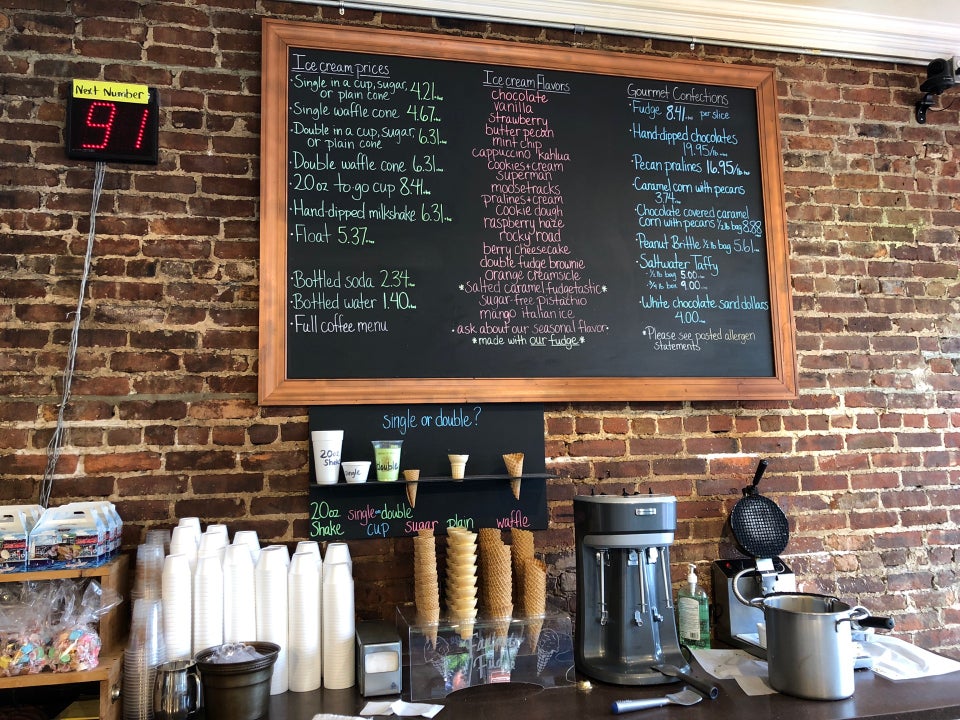 Next Number
91
Ice cream prices
·Single in a cup, sugar,
or plain cone 4.21
·Single waffle cone 4.67
·Double in a cup, sugar,
or plain cone 6.31
·Double waffle cone 6.31
·20 oz to-go cup 8.41
·Hand-dipped milkshake 6.31
·Float 5.37
·Bottled soda 2.34
·Bottled water 1.40
·Full coffee menu
Ice cream Flavors
chocolate
vanilla
strawberry
butter pecan
mint chip
cappuccino kahlua
cookies+cream
superman
moosetracks
pralines+cream
cookie dough
raspberry haze
rocky road
berry cheesecake
double fudge brownie
orange creamsicle
*salted caramel fudgetastic*
sugar-free pistachio
mango italian ice
·ask about our seasonal flavor·
*made with our fudge*
Gourmet Confections
·Fudge 8.41 per slice
·Hand-dipped chocolates
19.95/lb
·Pecan pralines 16.95/lb
·Caramel corn with pecans
3.74
·Chocolate covered caramel
corn with pecans ½ lb bag 8.88
·Peanut Brittle ½ lb bag 5.61
·Saltwater Taffy
5.00
9.00
·White chocolate sand dollars
4.00
*Please see posted allergen
statements
single or double?
20oz
Shake
single
double
20oz single or double
Shake cup sugar plain waffle